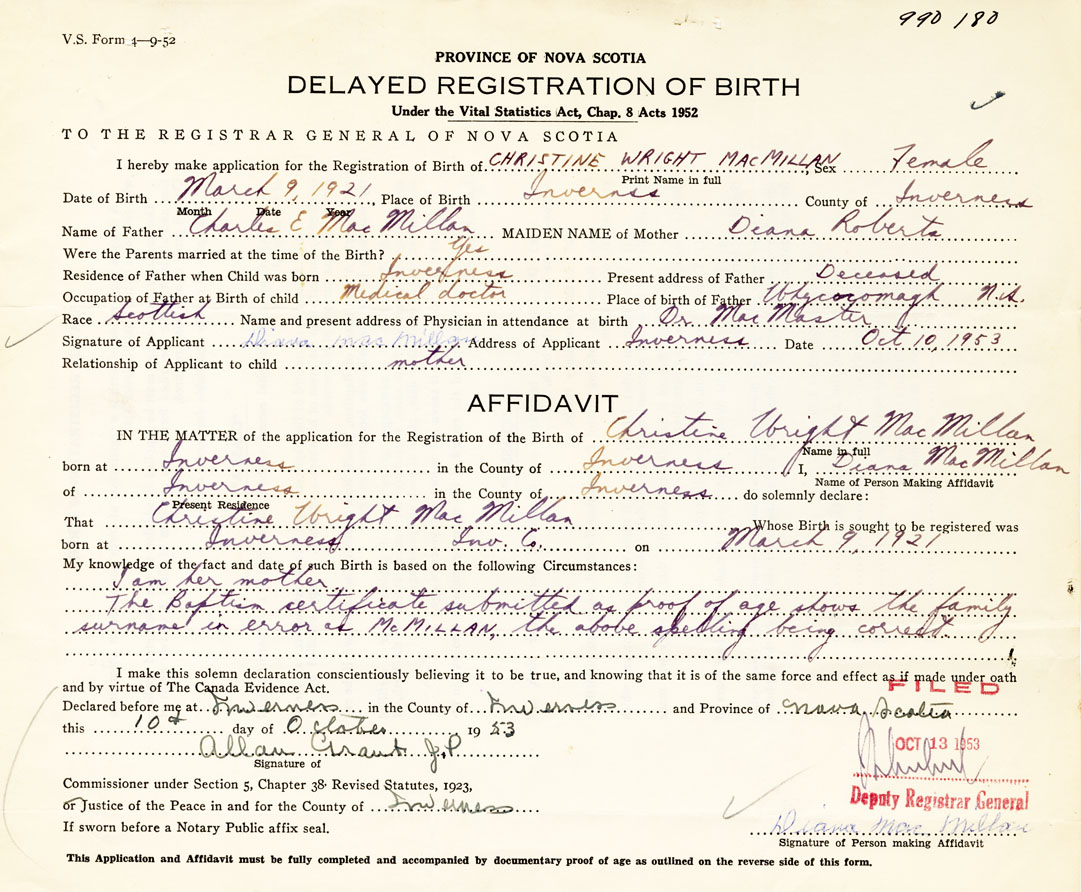 990 180
V.S. Form 4—9-52
PROVINCE OF NOVA SCOTIA
DELAYED REGISTRATION OF BIRTH
Under the Vital Statistics Act, Chap. 8 Acts 1952
TO THE REGISTRAR GENERAL OF NOVA SCOTIA
I hereby make application for the Registration of Birth of CHRISTINE WRIGHT MACMILLAN, Sex Female
Print Name in full
Date of Birth March 9, 1921, Place of Birth Inverness County of Inverness
Month Date Year
Name of Father Charles E MacMillan MAIDEN NAME of Mother Diana Roberts
Were the Parents married at the time of the Birth? Yes
Residence of Father when Child was born Inverness Present address of Father Deceased
Occupation of Father at Birth of child Medical doctor Place of birth of Father Whycocomagh N.S.
Race Scottish Name and present address of Physician in attendance at birth Dr. MacMaster
Signature of Applicant Diana MacMillan Address of Applicant Inverness Date Oct 10, 1953
Relationship of Applicant to child mother
AFFIDAVIT
IN THE MATTER of the application for the Registration of the Birth of Christine Wright MacMillan
Name in full
born at Inverness in the County of Inverness I, Diana MacMillan
Name of Person Making Affidavit
of Inverness in the County of Inverness do solemnly declare:
Present Residence
That Christine Wright MacMillan Whose Birth is sought to be registered was
born at Inverness Inv. Co. on March 9, 1921
My knowledge of the fact and date of such Birth is based on the following Circumstances:
I am her mother
The Baptism certificate submitted as proof of age shows the family
surname in error as McMILLAN, the above spelling being correct
I make this solemn declaration conscientiously believing it to be true, and knowing that it is of the same force and effect as if made under oath
and by virtue of The Canada Evidence Act.
FILED
Declared before me at Inverness in the County of Inverness and Province of Nova Scotia
this 10th day of October 1953
OCT 13 1953
Allan Grant J.P.
Signature of
Commissioner under Section 5, Chapter 38 Revised Statutes, 1923,
Deputy Registrar General
or Justice of the Peace in and for the County of Inverness
If sworn before a Notary Public affix seal.
Diana MacMillan
Signature of Person making Affidavit
This Application and Affidavit must be fully completed and accompanied by documentary proof of age as outlined on the reverse side of this form.